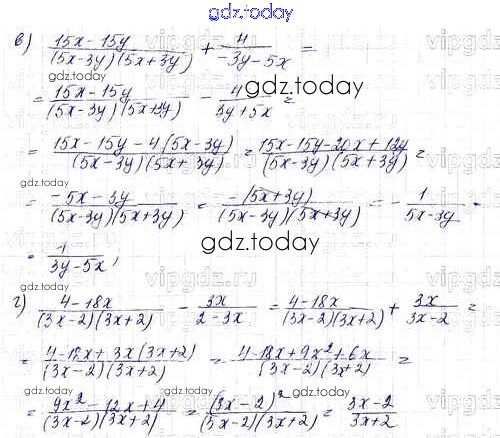 gdz.today
в) (15x-15y)/((5x-3y)(5x+3y)) + 4/(-3y-5x) =
gdz.today
= (15x-15y)/((5x-3y)(5x+3y)) - 4/(3y+5x) =
gdz.today
= (15x-15y-4(5x-3y))/((5x-3y)(5x+3y)) = (15x-15y-20x+12y)/((5x-3y)(5x+3y)) =
gdz.today
= (-5x-3y)/((5x-3y)(5x+3y)) = (-(5x+3y))/((5x-3y)(5x+3y)) = - 1/(5x-3y) =
gdz.today
gdz.today
= 1/(3y-5x);
г) (4-18x)/((3x-2)(3x+2)) - 3x/(2-3x) = (4-18x)/((3x-2)(3x+2)) + 3x/(3x-2) =
gdz.today
gdz.today
= (4-18x+3x(3x+2))/((3x-2)(3x+2)) = (4-18x+9x²+6x)/((3x-2)(3x+2)) =
gdz.today
gdz.today
= (9x²-12x+4)/((3x-2)(3x+2)) = (3x-2)²/((3x-2)(3x+2)) = (3x-2)/(3x+2)
gdz.today
gdz.today